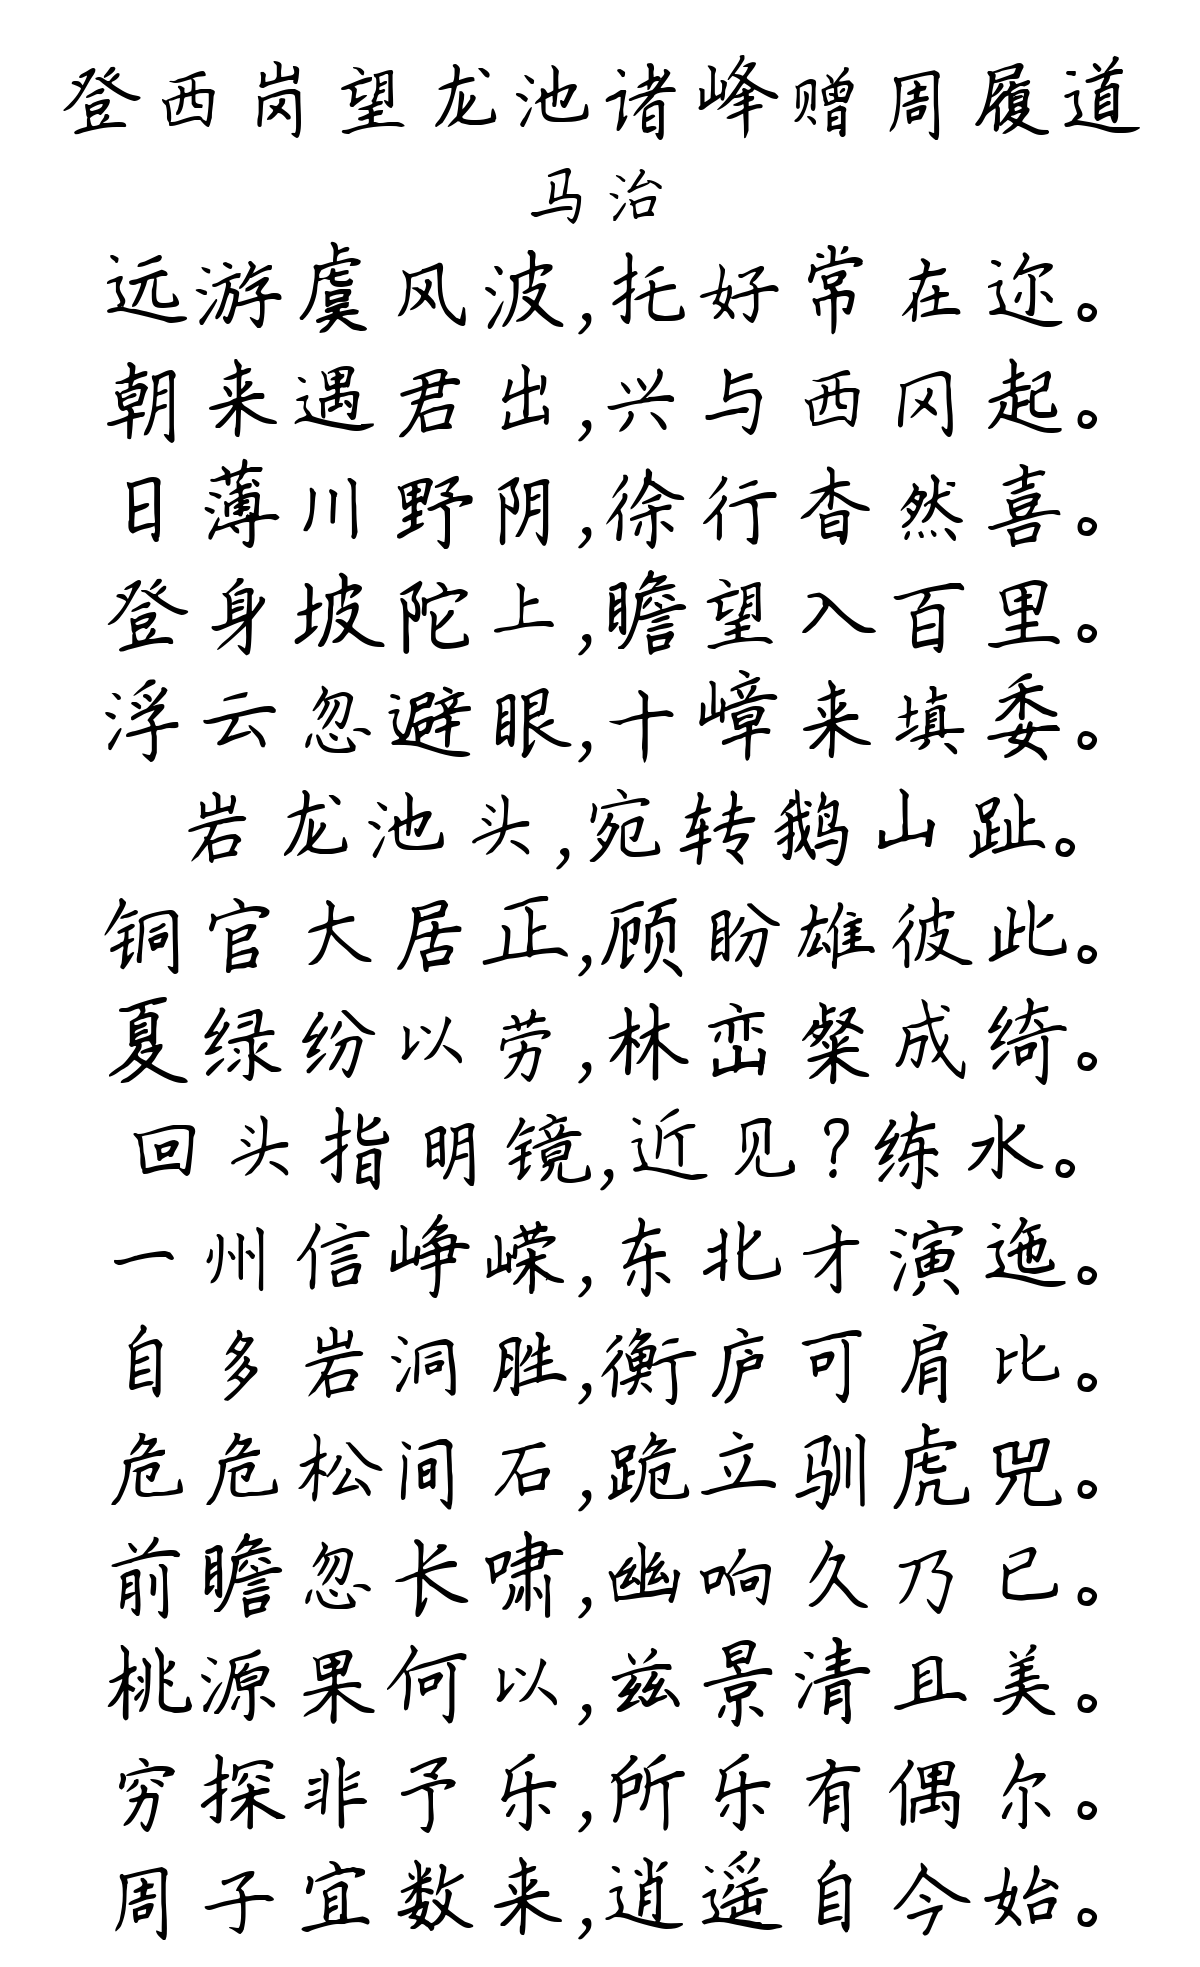 登西岗望龙池诸峰赠周履道
马治
远游虞风波,托好常在迩。
朝来遇君出,兴与西冈起。
日薄川野阴,徐行杳然喜。
登身坡陀上,瞻望入百里。
浮云忽避眼,十嶂来填委。
岩龙池头,宛转鹅山趾。
铜官大居正,顾盼雄彼此。
夏绿纷以劳,林峦粲成绮。
回头指明镜,近见?练水。
一州信峥嵘,东北才演迤。
自多岩洞胜,衡庐可肩比。
危危松间石,跪立驯虎兕。
前瞻忽长啸,幽响久乃已。
桃源果何以,兹景清且美。
穷探非予乐,所乐有偶尔。
周子宜数来,逍遥自今始。